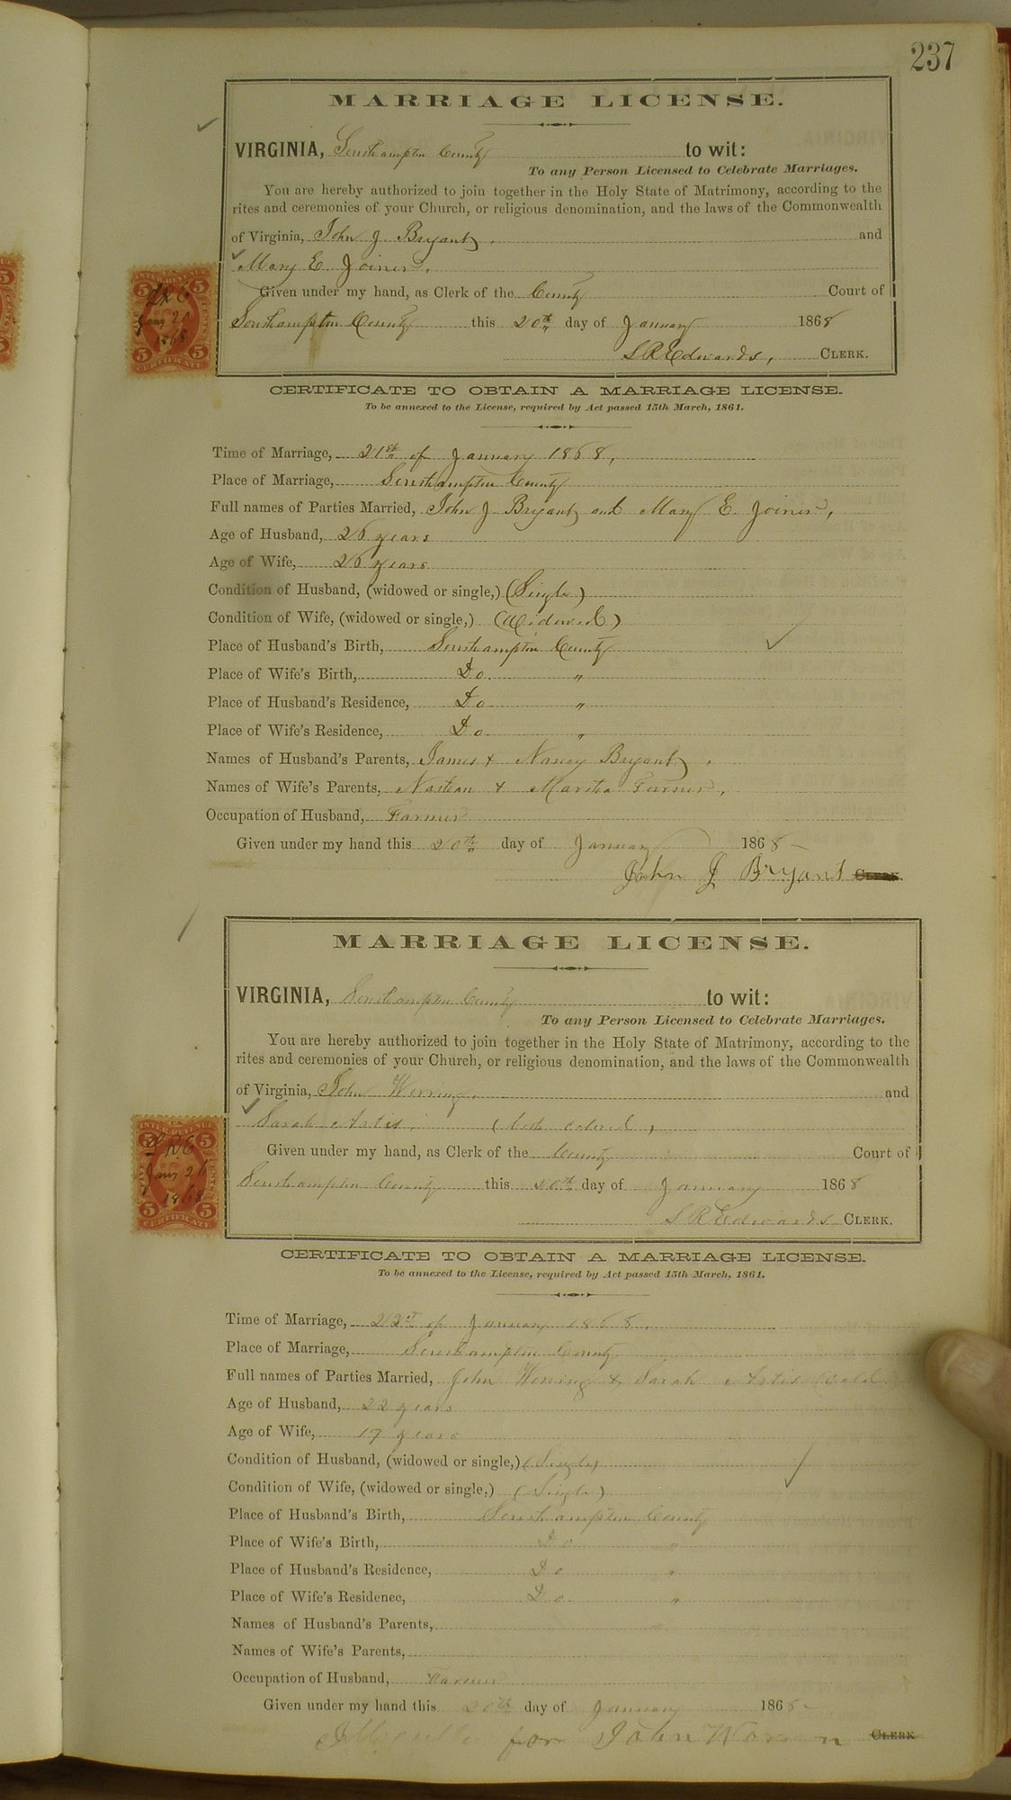 237
MARRIAGE LICENSE.
VIRGINIA, Southampton County to wit:
To any Person Licensed to Celebrate Marriages.
You are hereby authorized to join together in the Holy State of Matrimony, according to the
rites and ceremonies of your Church, or religious denomination, and the laws of the Commonwealth
of Virginia, John J Bryant, and
Mary E. Joiner.
Given under my hand, as Clerk of the County Court of
Southampton County this 20th day of January 1868
S R Edwards, CLERK.
CERTIFICATE TO OBTAIN A MARRIAGE LICENSE.
To be annexed to the License, required by Act passed 15th March, 1861.
Time of Marriage, 21st of January 1868,
Place of Marriage, Southampton County
Full names of Parties Married, John J Bryant and Mary E. Joiner,
Age of Husband, 26 years
Age of Wife, 26 years
Condition of Husband, (widowed or single,) (Single)
Condition of Wife, (widowed or single,) (Widowed)
Place of Husband's Birth, Southampton County
Place of Wife's Birth, Do "
Place of Husband's Residence, Do "
Place of Wife's Residence, Do "
Names of Husband's Parents, James & Nancy Bryant.
Names of Wife's Parents, & Martha Turner,
Occupation of Husband, Farmer
Given under my hand this 20th day of January 1868
John J Bryant CLERK.
MARRIAGE LICENSE.
VIRGINIA, Southampton County to wit:
To any Person Licensed to Celebrate Marriages.
You are hereby authorized to join together in the Holy State of Matrimony, according to the
rites and ceremonies of your Church, or religious denomination, and the laws of the Commonwealth
of Virginia, John and
Sarah Artis. (both colored,
Given under my hand, as Clerk of the County Court of
Southampton County this 20th day of January 1868
S R Edwards CLERK.
CERTIFICATE TO OBTAIN A MARRIAGE LICENSE.
To be annexed to the License, required by Act passed 15th March, 1861.
Time of Marriage, of January 1868.
Place of Marriage, Southampton County
Full names of Parties Married, John & Sarah Artis (cold
Age of Husband, 22 years
Age of Wife, 17 years
Condition of Husband, (widowed or single,) (Single)
Condition of Wife, (widowed or single,) (Single)
Place of Husband's Birth, Southampton County
Place of Wife's Birth, Do "
Place of Husband's Residence, Do "
Place of Wife's Residence, Do "
Names of Husband's Parents,
Names of Wife's Parents,
Occupation of Husband, Farmer
Given under my hand this 20th day of January 1868
for John CLERK